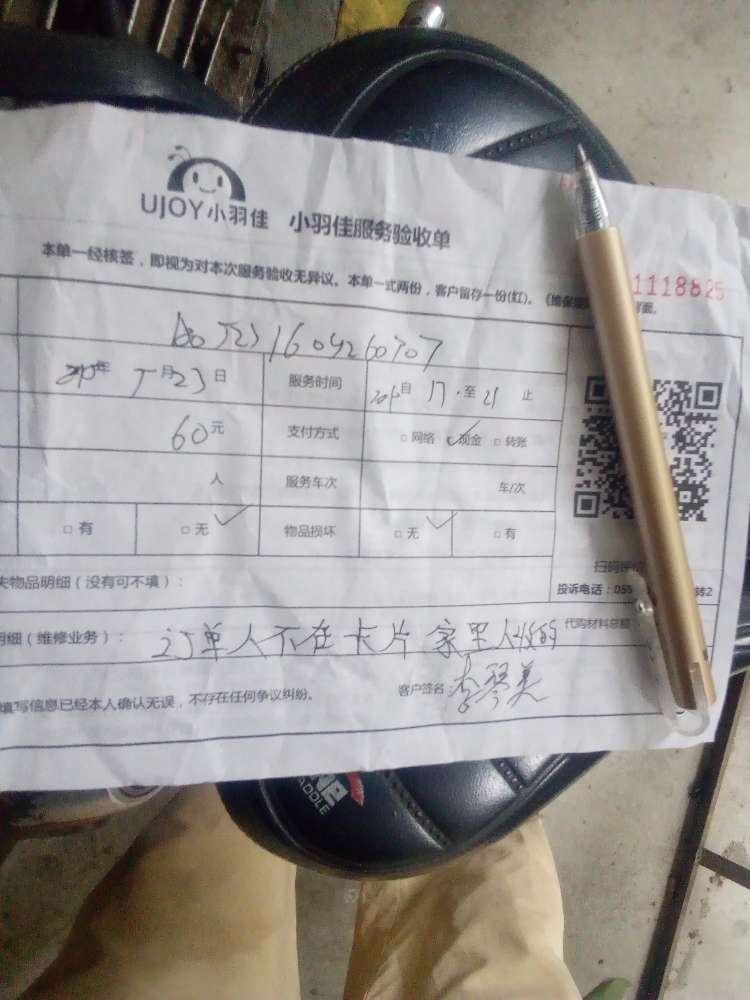 UJOY小羽佳 小羽佳服务验收单
本单一经核签，即视为对本次服务验收无异议。本单一式两份，客户留存一份(红)。
1118825
年 5月23日 服务时间 自 17 至 21 止
60元 支付方式 □ 网络 ☑ 现金 □ 转账
人 服务车次 车/次
□ 有 □ 无 ✓ 物品损坏 □ 无 ✓ □ 有
扫码评价
失物品明细（没有可不填）：
投诉电话：055 转2
明细（维修业务）： 订单人不在卡片家里人收的
代购材料总额
填写信息已经本人确认无误，不存在任何争议纠纷。 客户签名 李琴美
ADDLE